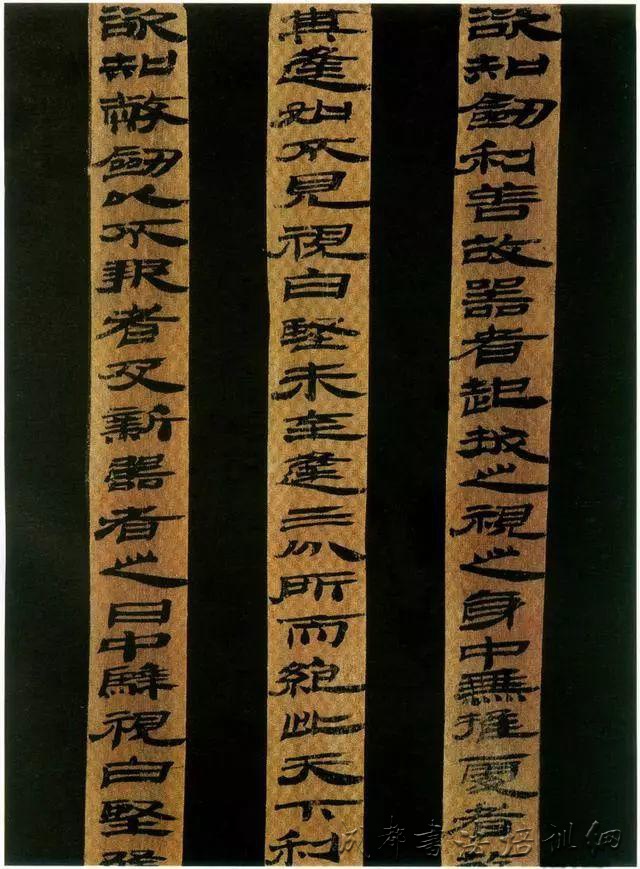 欲知劍利善故器者起拔之視之身中無推處者故
其逢如不見視白堅未至逢三分所而絕此天下利
欲知幣劍以不報者及新器者之日中騂視白堅
成都書法培训網